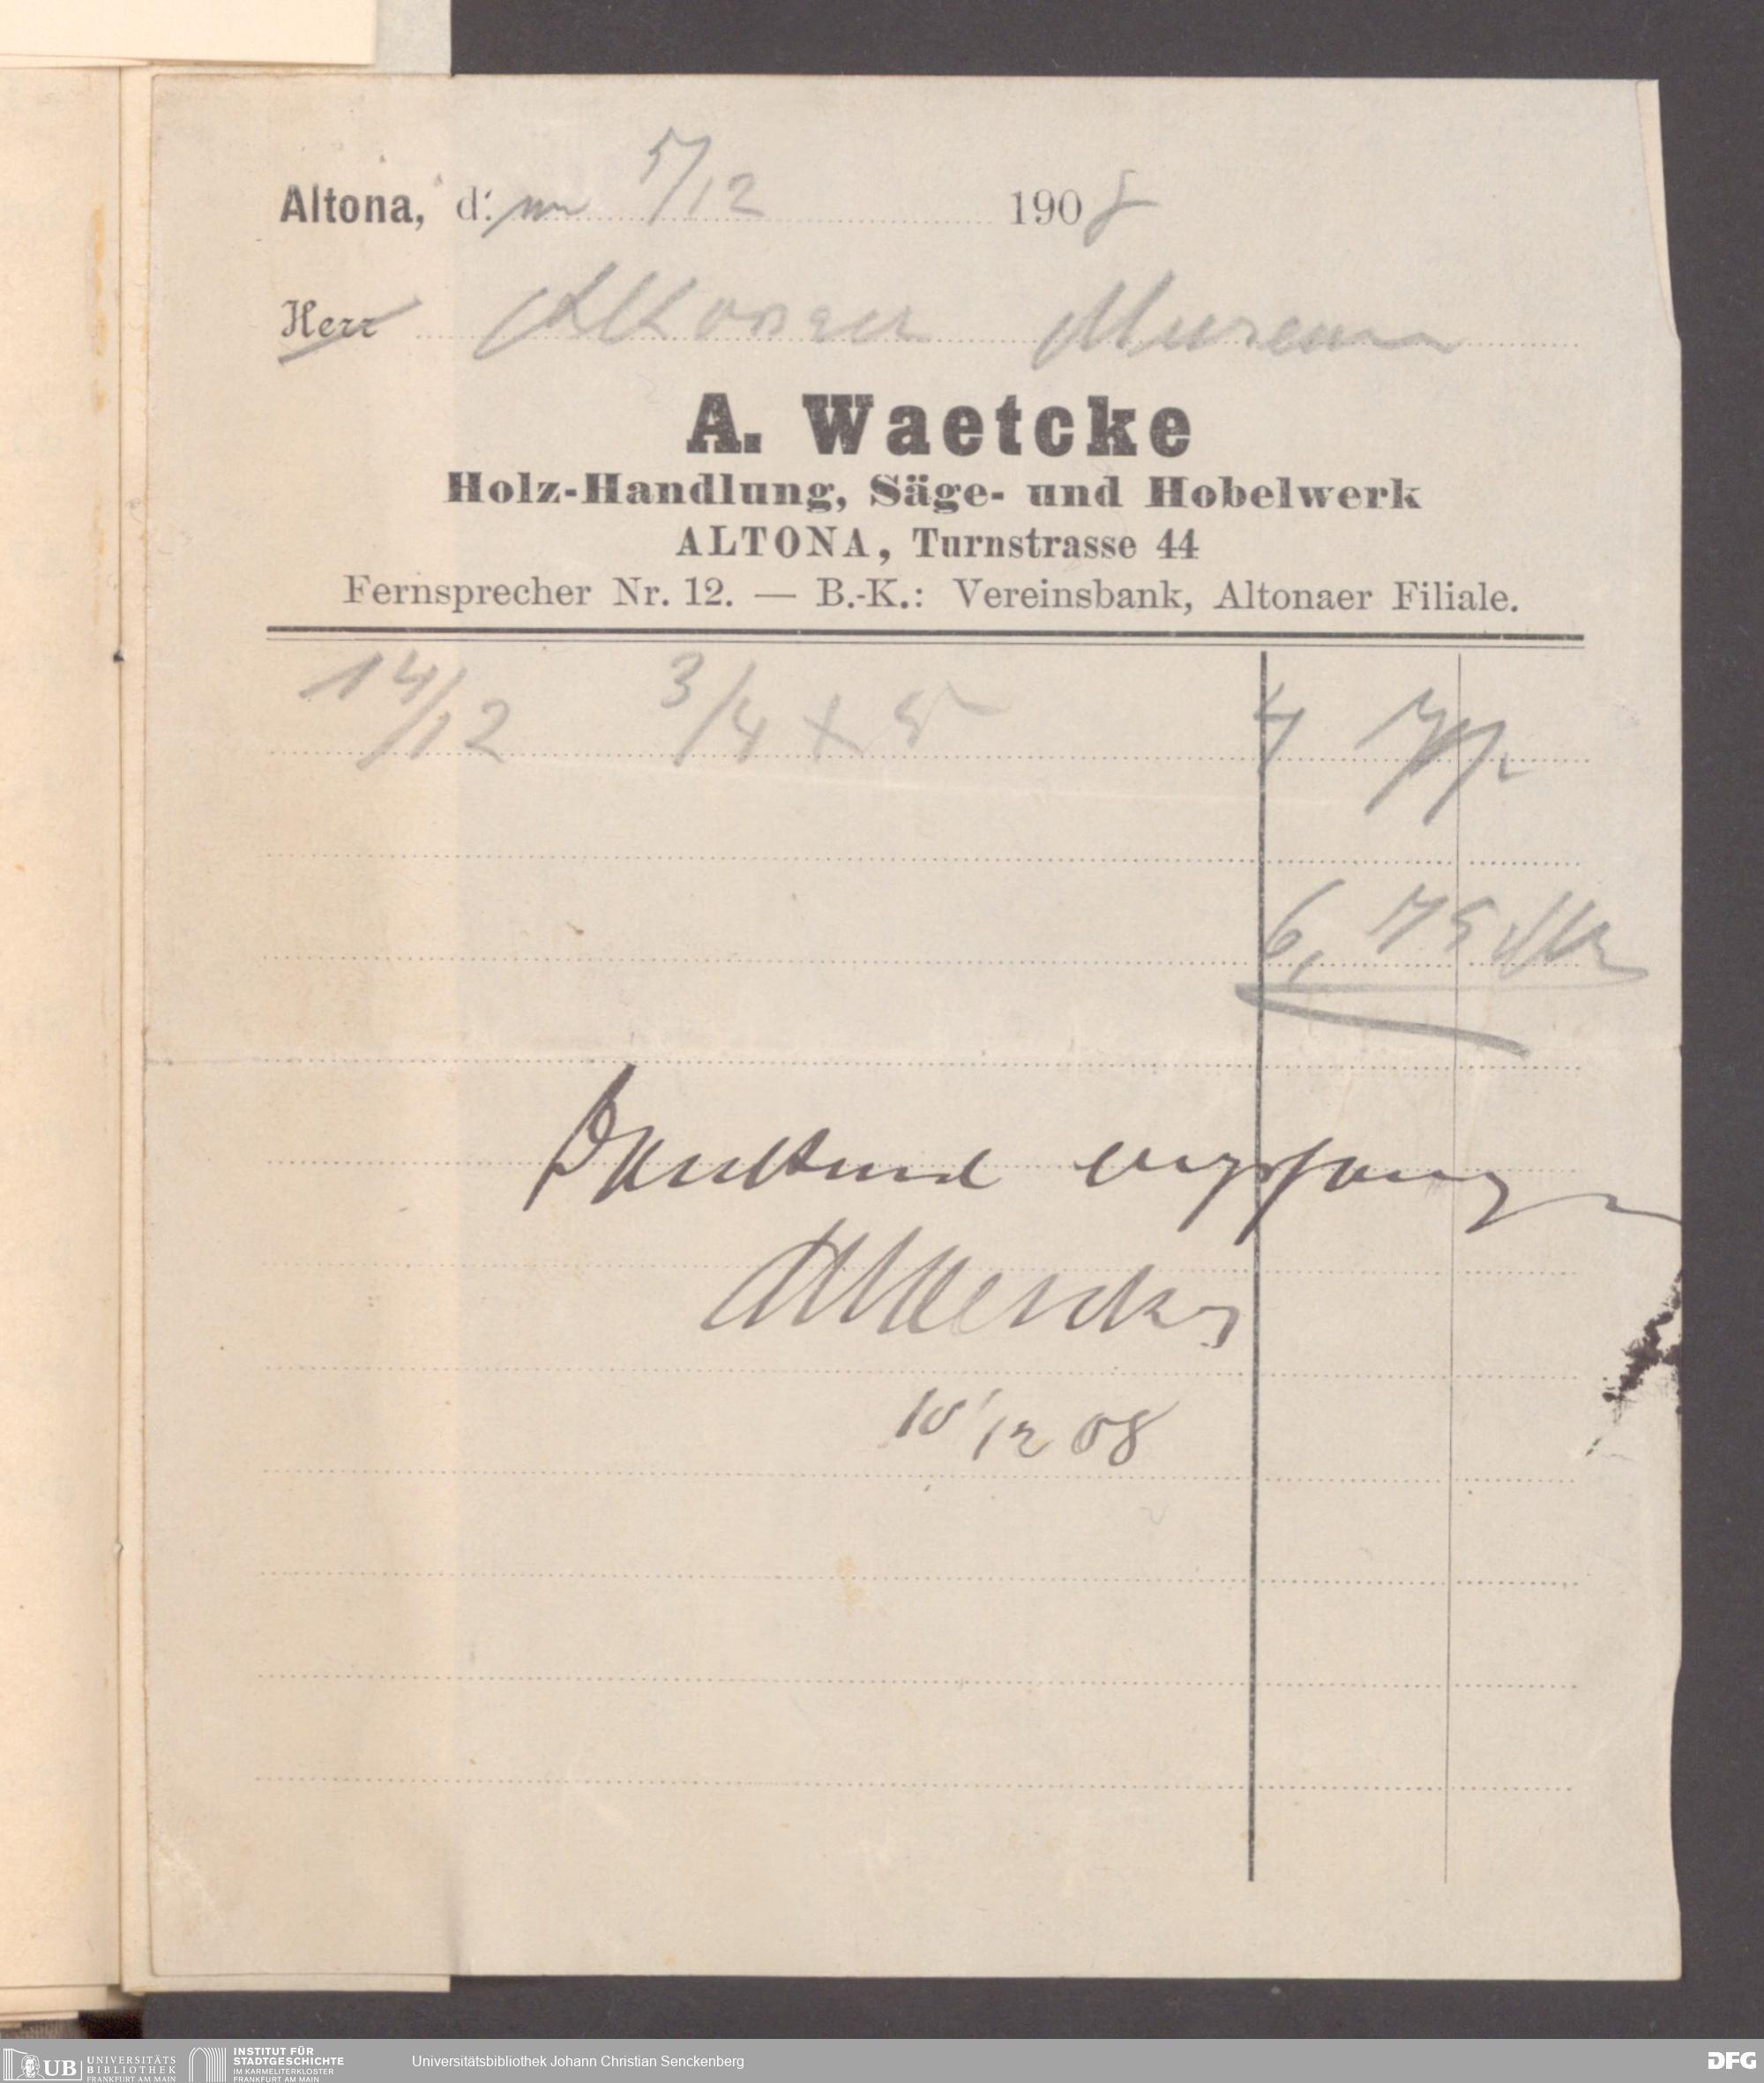 Altona, d. en 5/12 1908
Herr Altonaer Museum
A. Waetcke
Holz-Handlung, Säge- und Hobelwerk
ALTONA, Turnstrasse 44
Fernsprecher Nr. 12. — B.-K.: Vereinsbank, Altonaer Filiale.
14/12 3/4 x 5
6,75 Mk
Dankend empfangen
A Waetcke
10/12 08
UB UNIVERSITÄTS
BIBLIOTHEK
FRANKFURT AM MAIN
INSTITUT FÜR
STADTGESCHICHTE
IM KARMELITERKLOSTER
FRANKFURT AM MAIN
Universitätsbibliothek Johann Christian Senckenberg
DFG